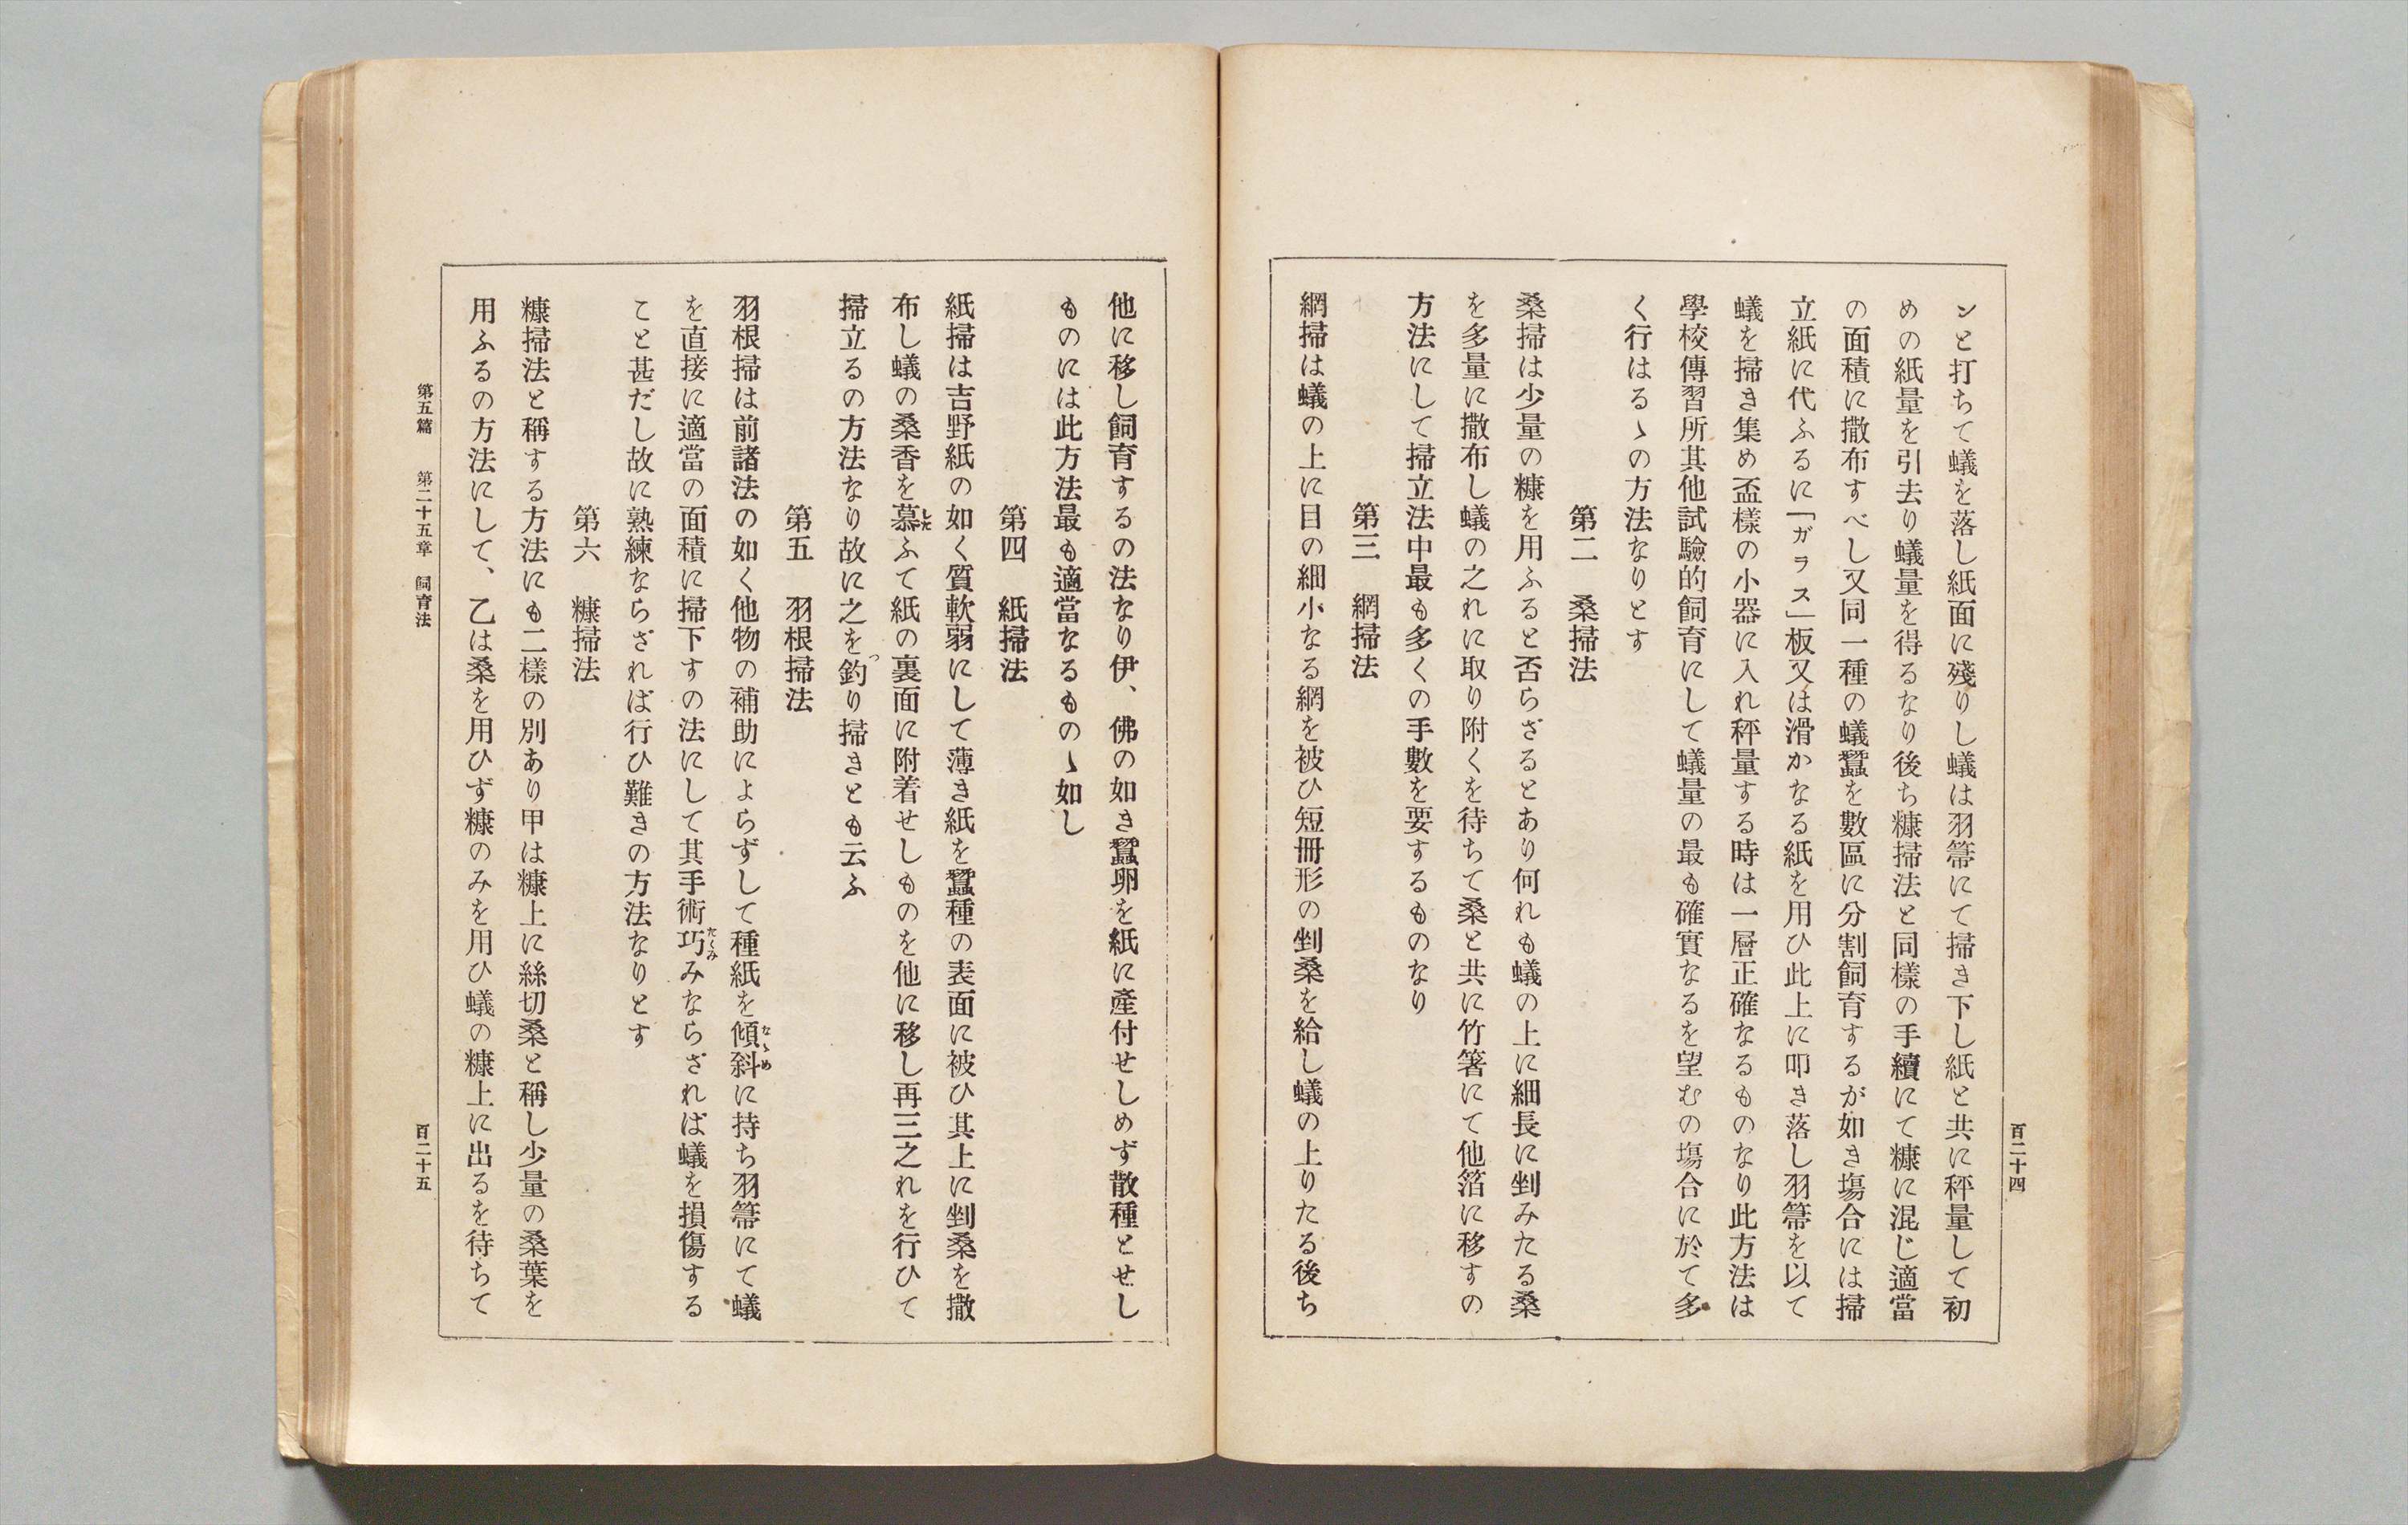 ンと打ちて蟻を落し紙面に殘りし蟻は羽箒にて掃き下し紙と共に秤量して初
めの紙量を引去り蟻量を得るなり後ち糠掃法と同樣の手續にて糠に混じ適當
の面積に撒布すべし又同一種の蟻蠶を數區に分割飼育するが如き塲合には掃
立紙に代ふるに「ガラス」板又は滑かなる紙を用ひ此上に叩き落し羽箒を以て
蟻を掃き集め盃樣の小器に入れ秤量する時は一層正確なるものなり此方法は
學校傳習所其他試驗的飼育にして蟻量の最も確實なるを望むの塲合に於て多
く行はるゝの方法なりとす
第二　桑掃法
桑掃は少量の糠を用ふると否らざるとあり何れも蟻の上に細長に剉みたる桑
を多量に撒布し蟻の之れに取り附くを待ちて桑と共に竹箸にて他箔に移すの
方法にして掃立法中最も多くの手數を要するものなり
第三　網掃法
網掃は蟻の上に目の細小なる網を被ひ短冊形の剉桑を給し蟻の上りたる後ち
百二十四
他に移し飼育するの法なり伊、佛の如き蠶卵を紙に產付せしめず散種とせし
ものには此方法最も適當なるものゝ如し
第四　紙掃法
紙掃は吉野紙の如く質軟弱にして薄き紙を蠶種の表面に被ひ其上に剉桑を撒
布し蟻の桑香を慕ふて紙の裏面に附着せしものを他に移し再三之れを行ひて
掃立るの方法なり故に之を釣り掃きとも云ふ
第五　羽根掃法
羽根掃は前諸法の如く他物の補助によらずして種紙を傾斜に持ち羽箒にて蟻
を直接に適當の面積に掃下すの法にして其手術巧みならざれば蟻を損傷する
こと甚だし故に熟練ならざれば行ひ難きの方法なりとす
第六　糠掃法
糠掃法と稱する方法にも二樣の別あり甲は糠上に絲切桑と稱し少量の桑葉を
用ふるの方法にして、乙は桑を用ひず糠のみを用ひ蟻の糠上に出るを待ちて
第五篇　第二十五章　飼育法
百二十五